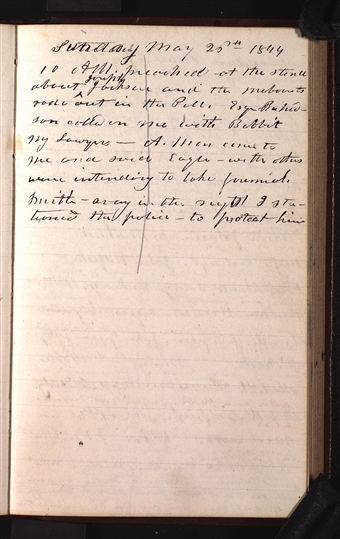 Sunday May 26th 1844
10 A M. preached - at the stand
about Joseph Jackson and the mobocrats
rode out in the P.M. Esqr Richard-
son called on me with Babbit
my Lawyers - A. Man came to
me and said Eagle - with others
were intending to take Jeremiah
Smith - away in the night I sta-
tioned the police - to protect him